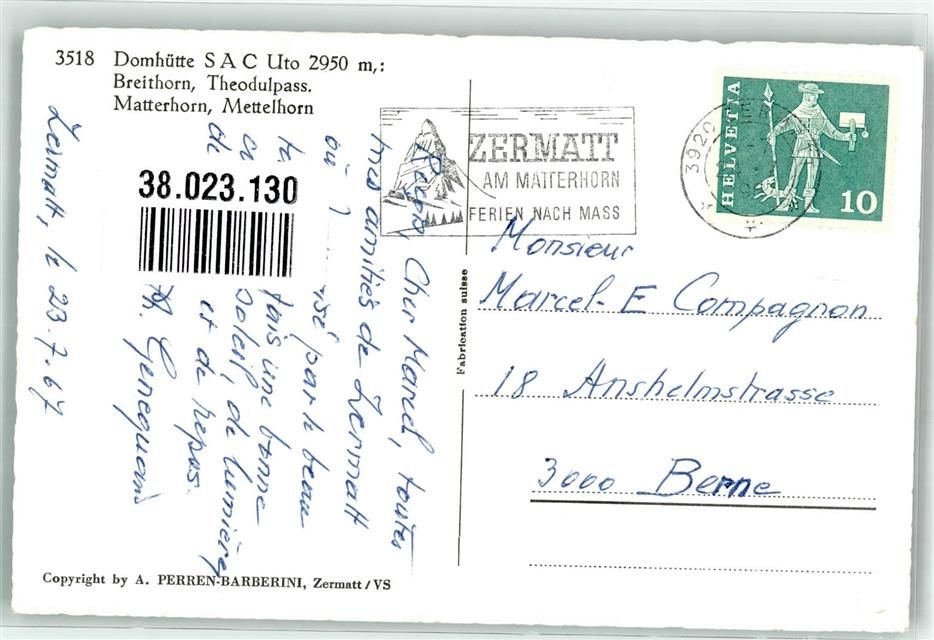 3518 Domhütte S A C Uto 2950 m,:
Breithorn, Theodulpass.
Matterhorn, Mettelhorn
38.023.130
ZERMATT
AM MATTERHORN
FERIEN NACH MASS
3920
HELVETIA
10
Zermatt, le 23.7.67
Cher Marcel, toutes
mes amitiés de Zermatt
où
par le beau
te
fais une bonne
de
soleil, de lumière
et de repos.
Monsieur
Marcel-E Compagnon
18 Anshelmstrasse
3000 Berne
Fabrication suisse
Copyright by A. PERREN-BARBERINI, Zermatt/VS